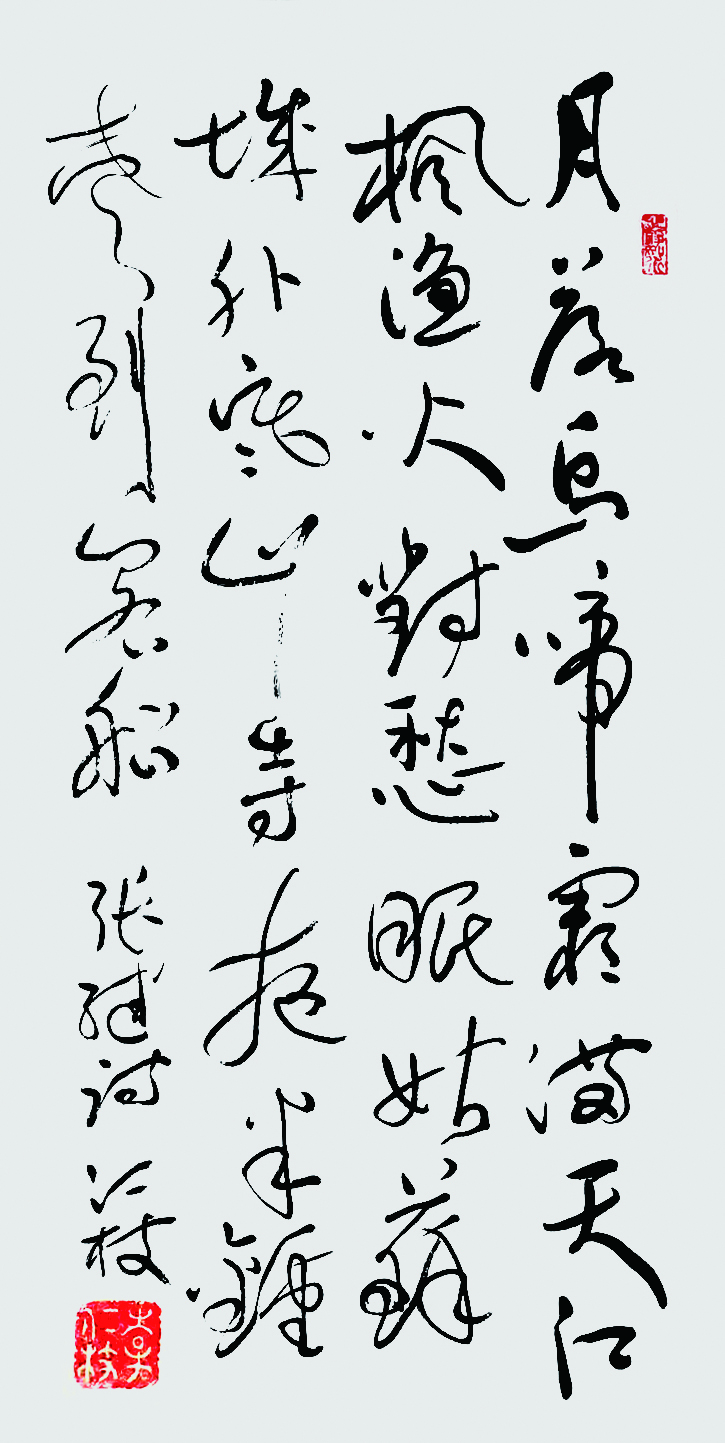 月落烏啼霜滿天江
楓漁火對愁眠姑蘇
城外寒山寺夜半鐘
聲到客船 張繼詩 仁枝